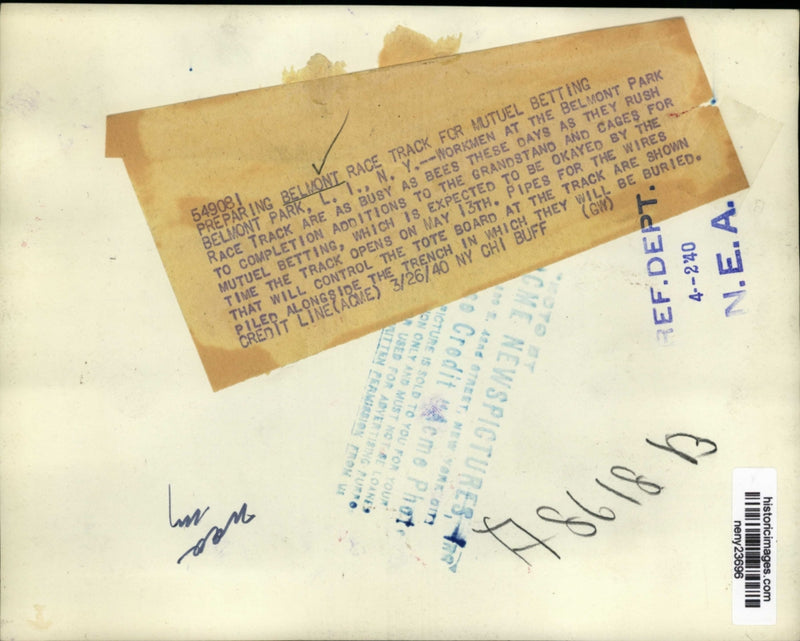 549081
PREPARING BELMONT RACE TRACK FOR MUTUEL BETTING
BELMONT PARK, L. I., N. Y.--WORKMEN AT THE BELMONT PARK
RACE TRACK ARE AS BUSY AS BEES THESE DAYS AS THEY RUSH
TO COMPLETION ADDITIONS TO THE GRANDSTAND AND CAGES FOR
MUTUEL BETTING, WHICH IS EXPECTED TO BE OKAYED BY THE
TIME THE TRACK OPENS ON MAY 13TH. PIPES FOR THE WIRES
THAT WILL CONTROL THE TOTE BOARD AT THE TRACK ARE SHOWN
PILED ALONGSIDE THE TRENCH IN WHICH THEY WILL BE BURIED.
CREDIT LINE(ACME) 3/26/40 NY CHI BUFF (GW)
REF. DEPT.
4--2 '40
N.E.A.
PHOTO BY
ACME NEWSPICTURES,
STREET, NEW YORK CITY
Credit Acme Photo
PICTURE IS SOLD TO YOU FOR YOUR
ONLY AND MUST NOT BE LOANED
OR USED FOR ADVERTISING PURP
WRITTEN PERMISSION FROM US
historicimages.com
neny23696